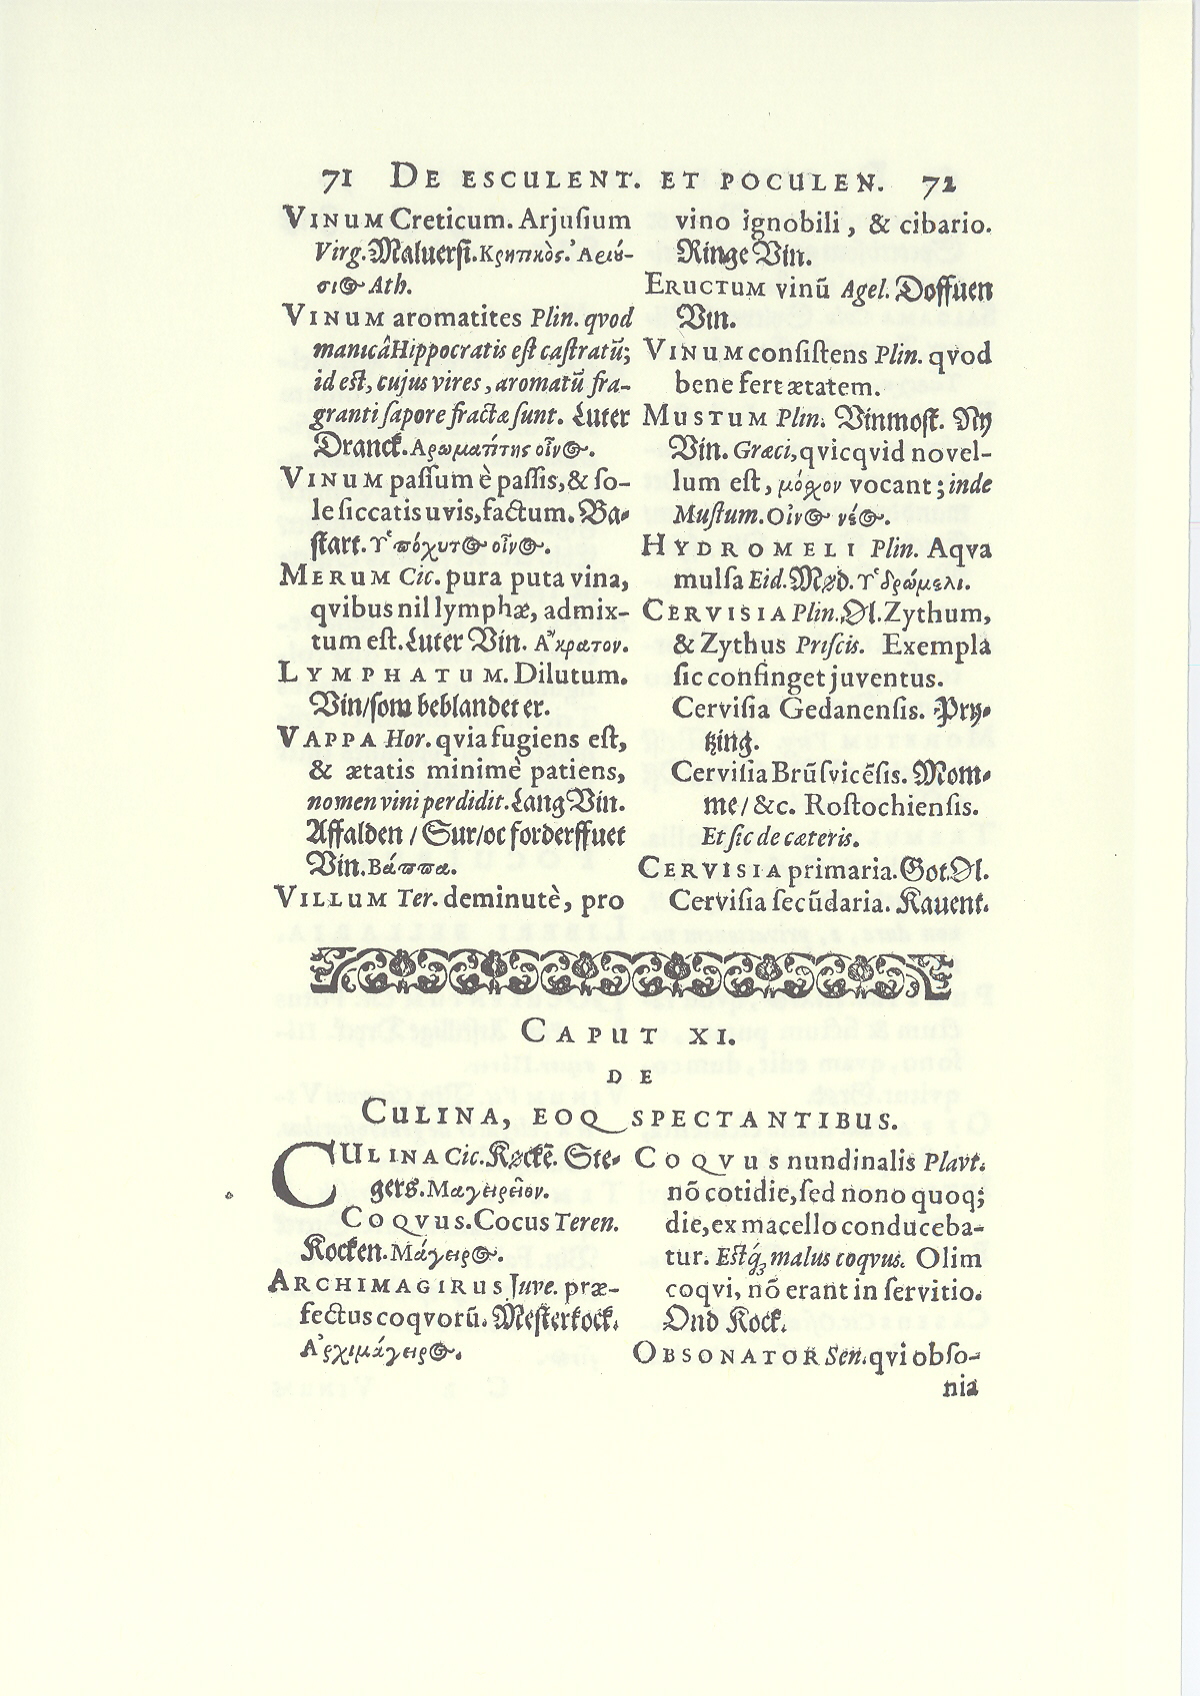 71 DE ESCULENT. ET POCULEN. 72
VINUM Creticum. Arjuſium
Virg. Maluerſi. Κρητικὸς. Ἀριύ-
σι@ Ath.
VINUM aromatites Plin. qvod
manicâ Hippocratis eſt caſtratũ;
id eſt, cujus vires, aromatũ fra-
granti ſapore fractæ ſunt. Luter
Dranck. Αρωματίτης οἶν@.
VINUM paſſum è paſſis, & ſo-
le ſiccatis uvis, factum. Ba-
ſtart. Υ῾πόχυτ@ οἶν@.
MERUM Cic. pura puta vina,
qvibus nil lymphæ, admix-
tum eſt. Luter Vin. Α῎κρατον.
LYMPHATUM. Dilutum.
Vin/ ſom beblandet er.
VAPPA Hor. qvia fugiens eſt,
& ætatis minimè patiens,
nomen vini perdidit. Lang Vin.
Affalden / Sur/ oc forderffuet
Vin. Βάππα.
VILLUM Ter. deminutè, pro
vino ignobili, & cibario.
Ringe Vin.
ERUCTUM vinũ Agel. Doffuen
Vin.
VINUM conſiſtens Plin. qvod
bene fert ætatem.
MUSTUM Plin. Vinmoſt. Ny
Vin. Græci, qvicqvid novel-
lum eſt, μόσχον vocant; inde
Muſtum. Οἶν@ νέ@.
HYDROMELI Plin. Aqva
mulſa Eid. Mød. Υ῾δρώμελι.
CERVISIA Plin. Øl. Zythum,
& Zythus Priſcis. Exempla
ſic confinget juventus.
Cerviſia Gedanenſis. Pry-
tzing.
Cerviſia Brũſvicẽſis. Mom-
me/ &c. Roſtochienſis.
Et ſic de cæteris.
CERVISIA primaria. Got Øl.
Cerviſia ſecũdaria. Kauent.
CAPUT XI.
DE
CULINA, EOQ SPECTANTIBUS.
CULINA Cic. Køckẽ. Ste-
gers. Μαγειρεῖον.
COQVUS. Cocus Teren.
Kocken. Μάγειρ@.
ARCHIMAGIRUS Juve. præ-
fectus coqvorũ. Meſterkock.
Α᾿ρχιμάγειρ@.
COQVUS nundinalis Plavt.
nõ cotidie, ſed nono quoq;
die, ex macello conduceba-
tur. Eſtq́; malus coqvus. Olim
coqvi, nõ erant in ſervitio.
Ond Kock.
OBSONATOR Sen. qvi obſo-
nia